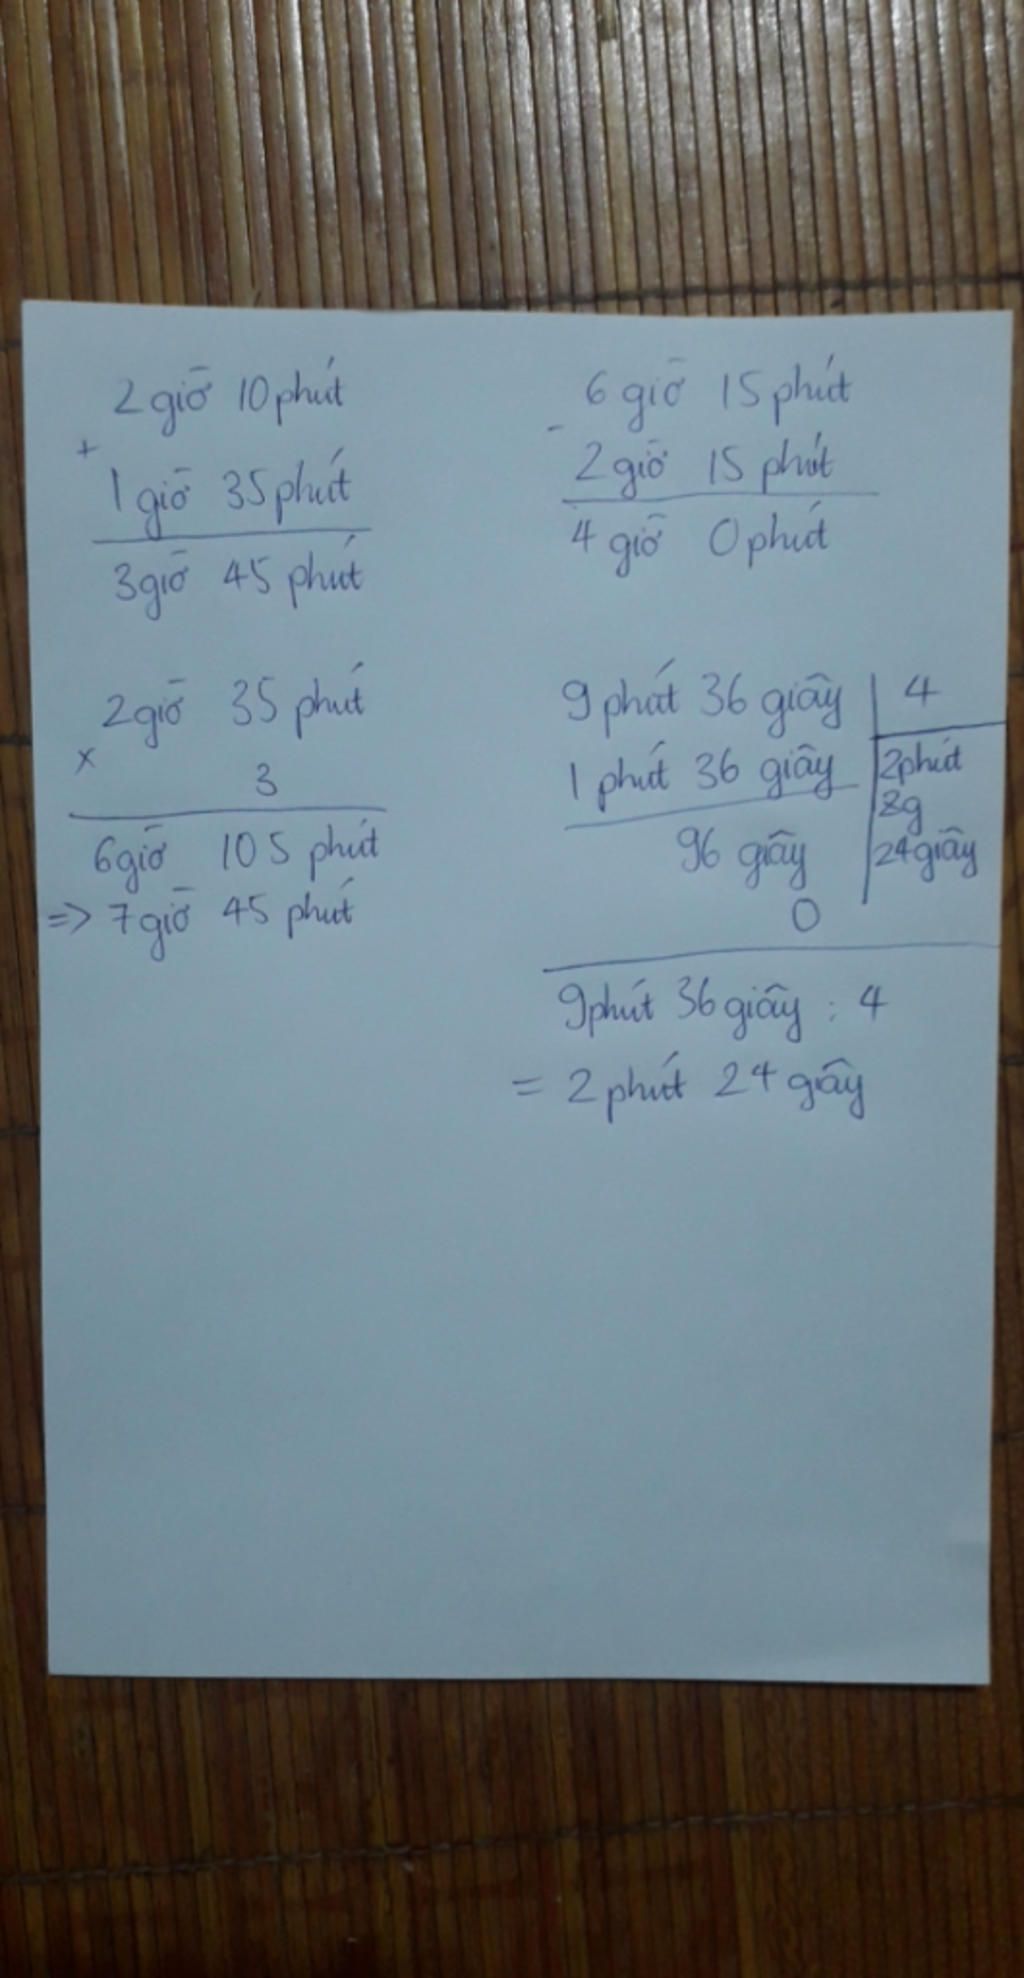 2 giờ 10 phút
+
1 giờ 35 phút
3 giờ 45 phút
6 giờ 15 phút
-
2 giờ 15 phút
4 giờ 0 phút
2 giờ 35 phút
x
3
6 giờ 105 phút
=> 7 giờ 45 phút
9 phút 36 giây | 4
1 phút 36 giây | 2 phút
96 giây
0
24 giây
9 phút 36 giây : 4
= 2 phút 24 giây